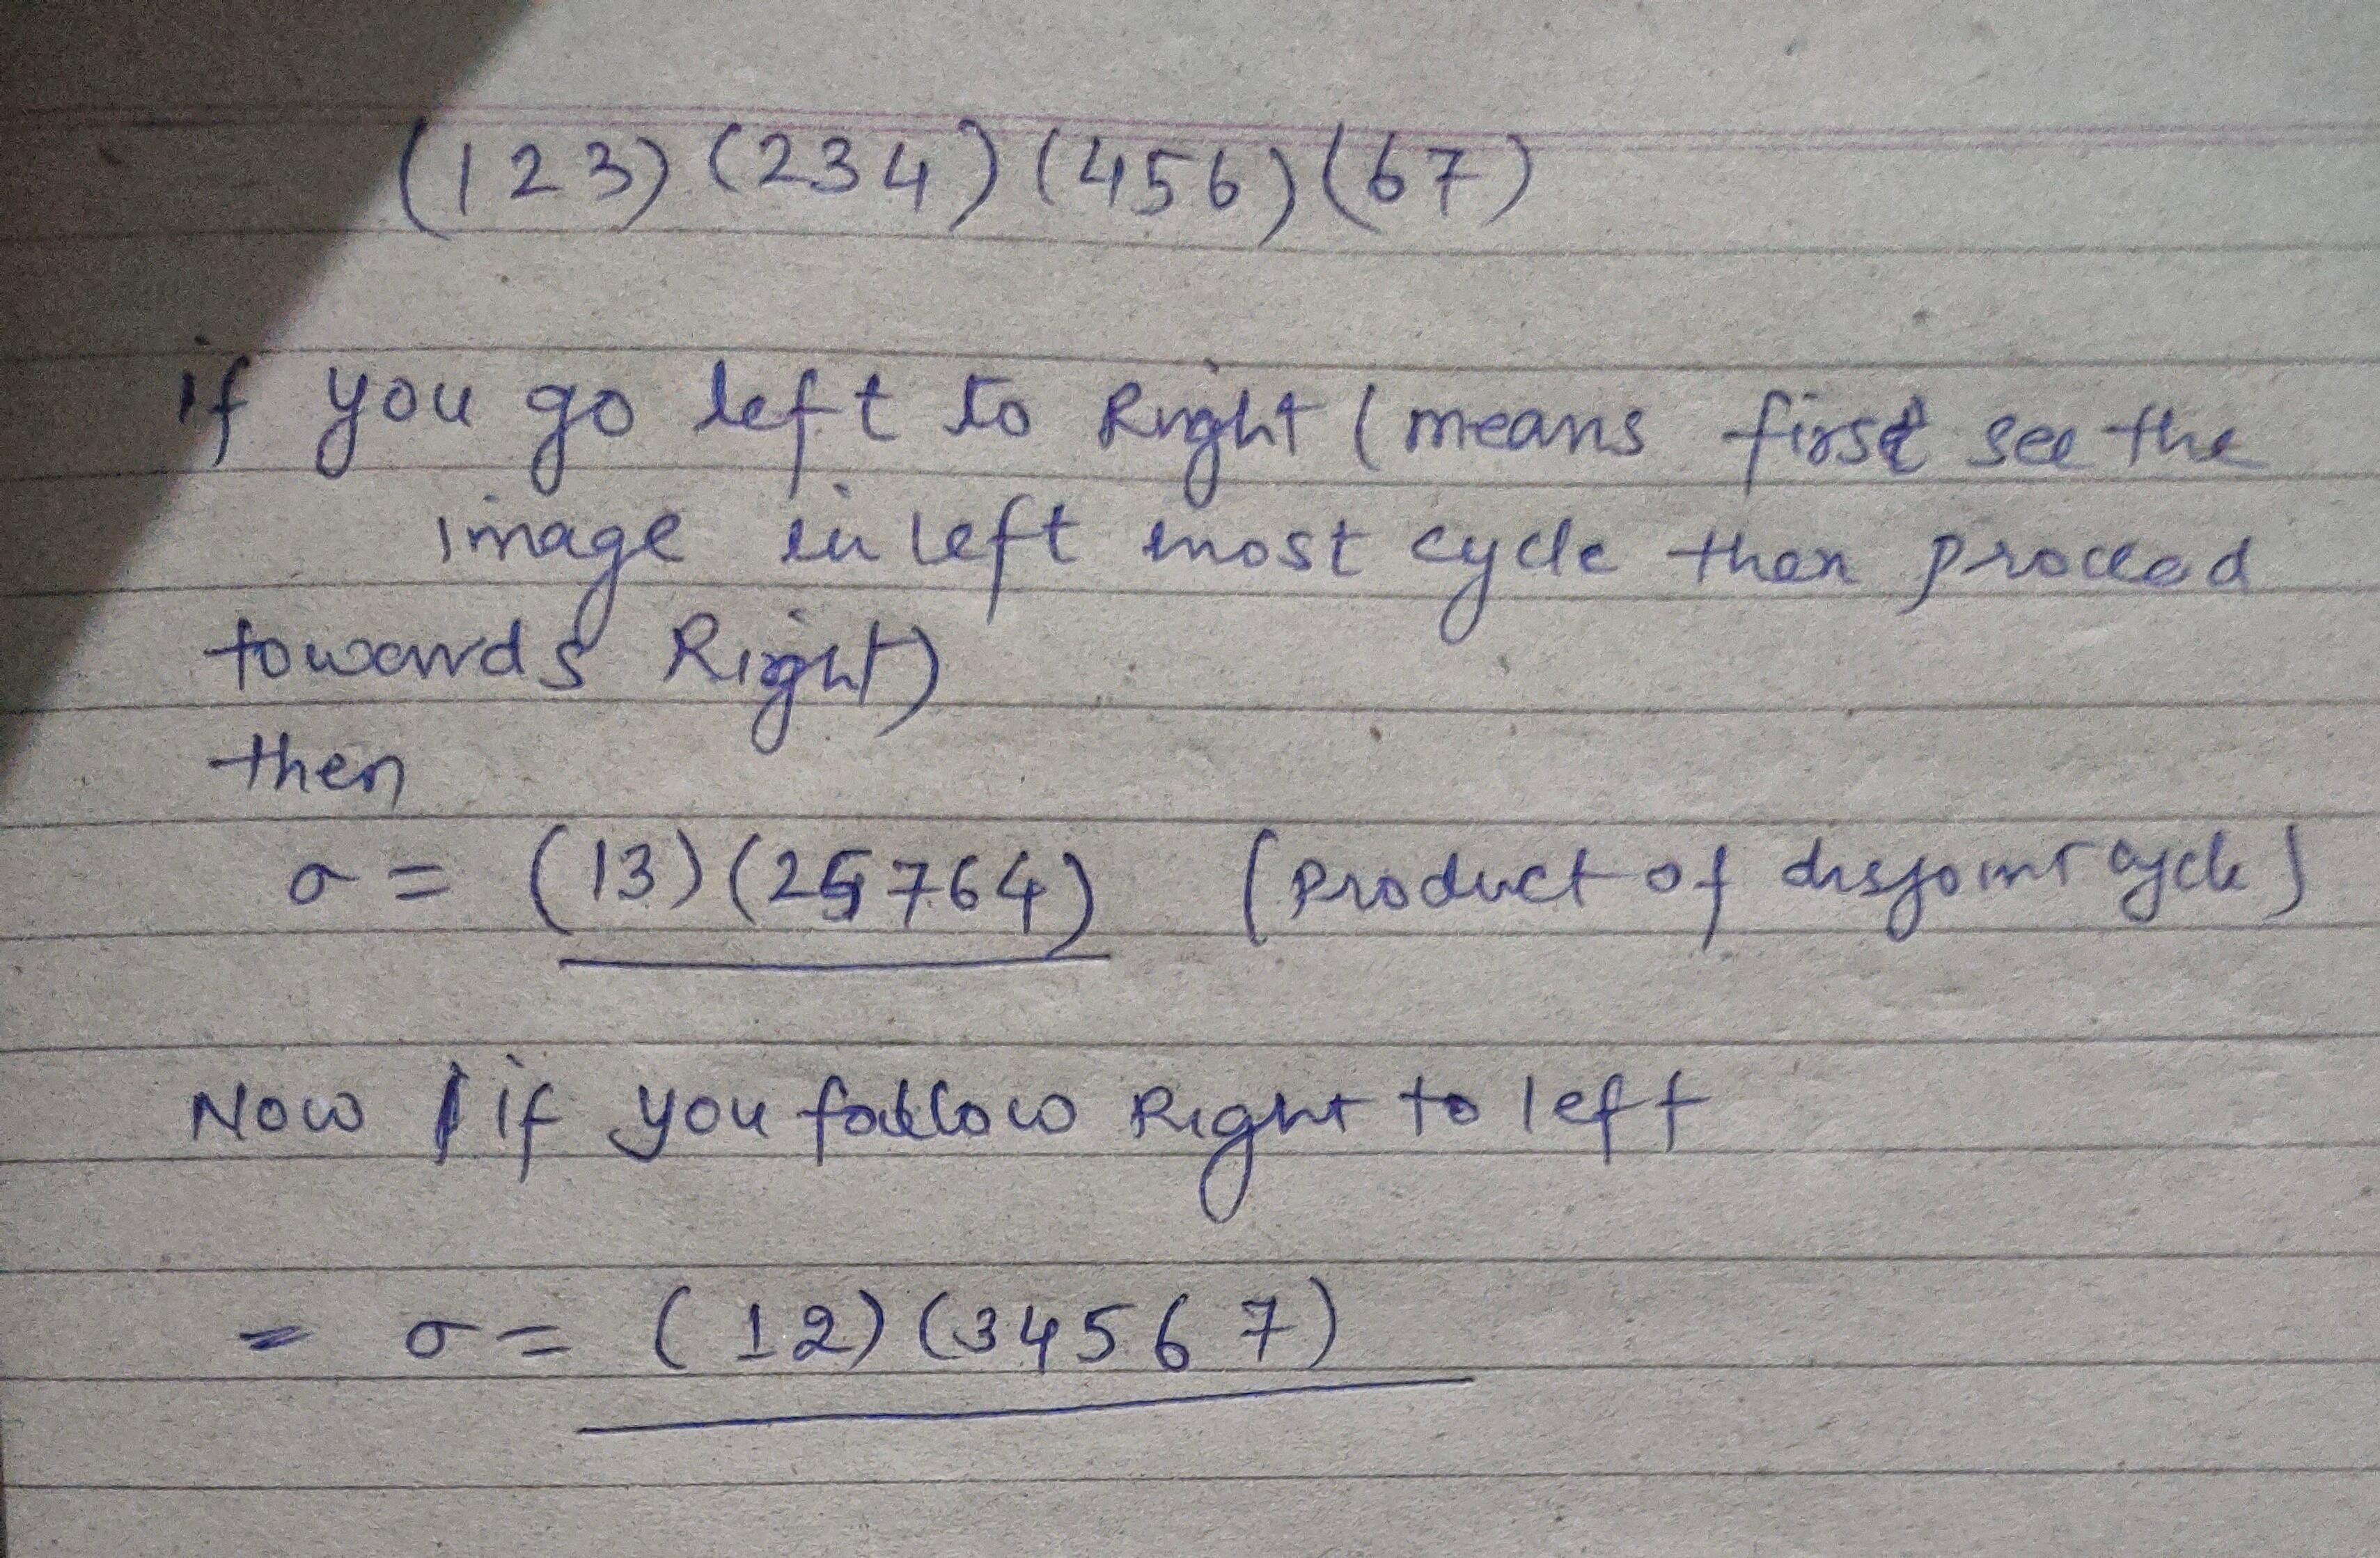 (123)(234)(456)(67)
if you go left to Right (means first see the
image in left most cycle then proceed
towards Right)
then
σ = (13)(25764) (Product of disjoint cycle)
Now if you follow Right to left
= σ = (12)(34567)